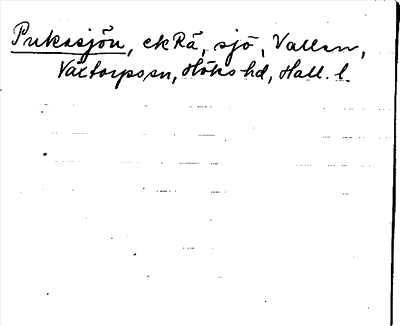 Pukasjön, ekRä, sjö, Vallen,
Växtorps sn, Höks hd, Hall. l.